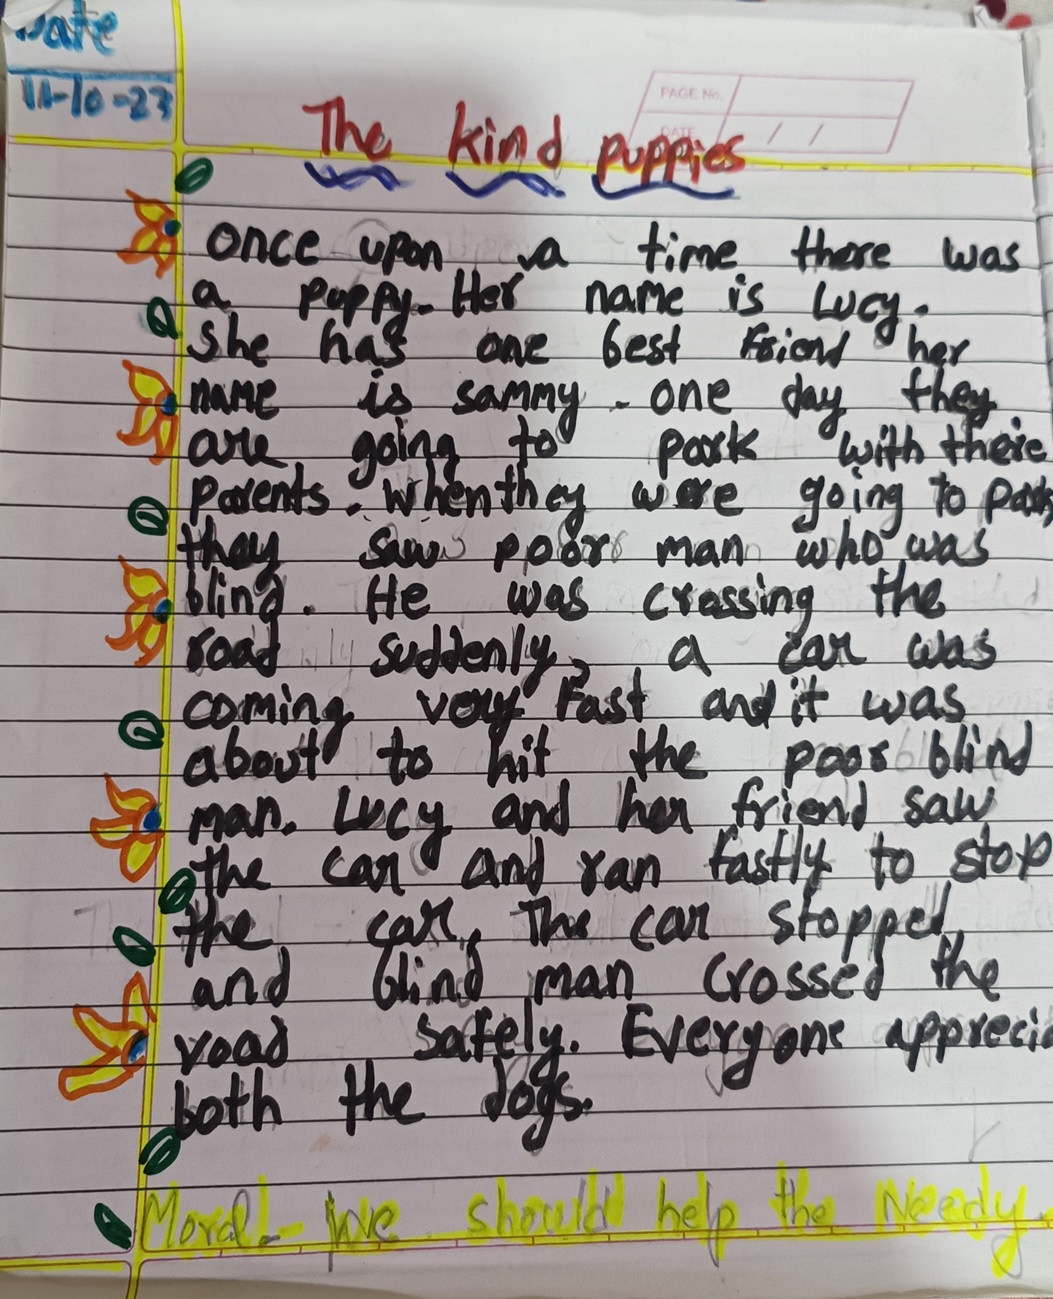 Date
11-10-23
PAGE No.
DATE / /
The kind puppies
once upon a time there was
a puppy. Her name is Lucy.
She has one best friend her
name is sammy. one day they
are going to park with there
parents. when they were going to park
they saw poor man who was
blind. He was crossing the
road suddenly, a car was
coming very Fast and it was
about to hit the poor blind
man. Lucy and her friend saw
the car and ran fastly to stop
the car, The car stopped
and blind man crossed the
road safely. Everyone apprecia
both the dogs.
Moral - We should help the Needy.